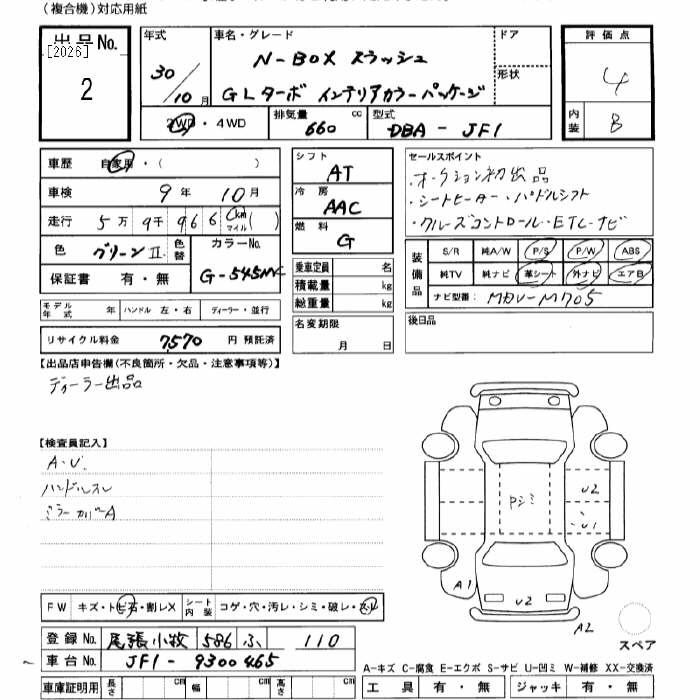 (複合機)対応用紙
出品No. [2026] 2
年式 30/10月
車名・グレード N-BOX スラッシュ
GLターボ インテリアカラーパッケージ
ドア
形状
2WD・4WD
排気量 660 cc
型式 DBA-JF1
評価点 4
内装 B
車歴 自家用・( )
車検 9年 10月
走行 5万9千966 km マイル ( )
色 グリーンⅡ 色替 カラーNo. G-545MC
保証書 有・無
モデル年式 年 ハンドル 左・右 ディーラー・並行
リサイクル料金 7,570 円 預託済
シフト AT
冷房 AAC
燃料 G
乗車定員 名
積載量 kg
総重量 kg
名変期限 月 日
セールスポイント
・オークション初出品
・シートヒーター・パドルシフト
・クルーズコントロール・ETC・ナビ
装備品 S/R 純A/W P/S P/W ABS
純TV 純ナビ 革シート 外ナビ エアB
ナビ型番: MDV-M705
後日品
【出品店申告欄(不良箇所・欠品・注意事項等)】
ディーラー出品
【検査員記入】
A・U
ハンドルスレ
ミラーカバーA
Pシミ
U2
U1
A1
U2
A2
スペア
FW キズ・トビ石・割レX シート内装 コゲ・穴・汚レ・シミ・破レ・スレ
登録No. 尾張小牧 586 ふ 110
車台No. JF1-9300465
車庫証明用 長さ cm 幅 cm 高さ cm
A-キズ C-腐食 E-エクボ S-サビ U-凹ミ W-補修 XX-交換済
工具 有・無 ジャッキ 有・無